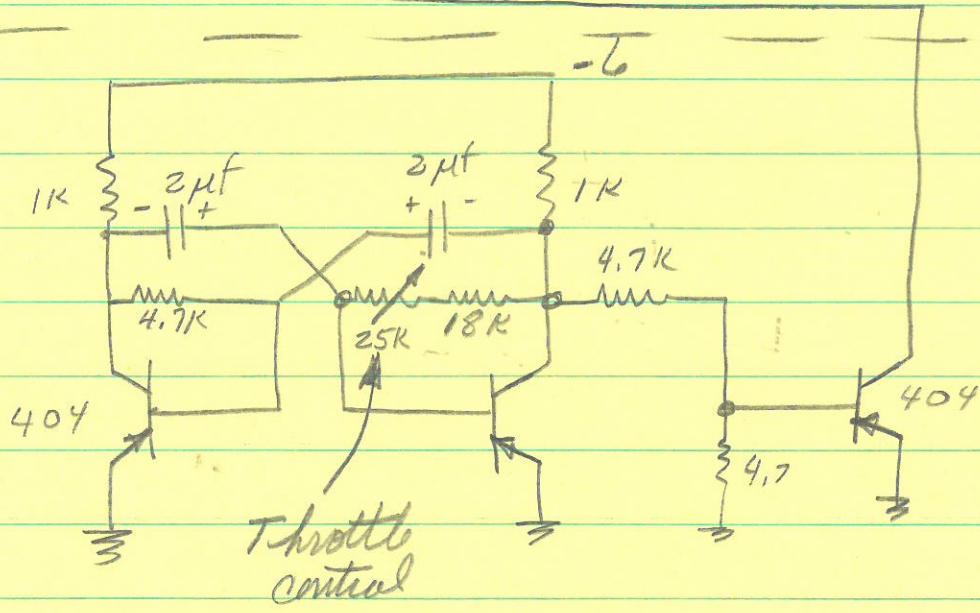 -6
2μf
2μf
1K
- +
+ -
1K
4.7K
4.7K
18K
25K
404
404
4.7
Throttle
control